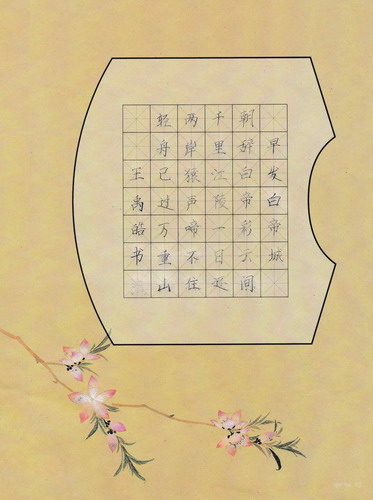 早发白帝城
朝辞白帝彩云间
千里江陵一日还
两岸猿声啼不住
轻舟已过万重山
王禹皓书